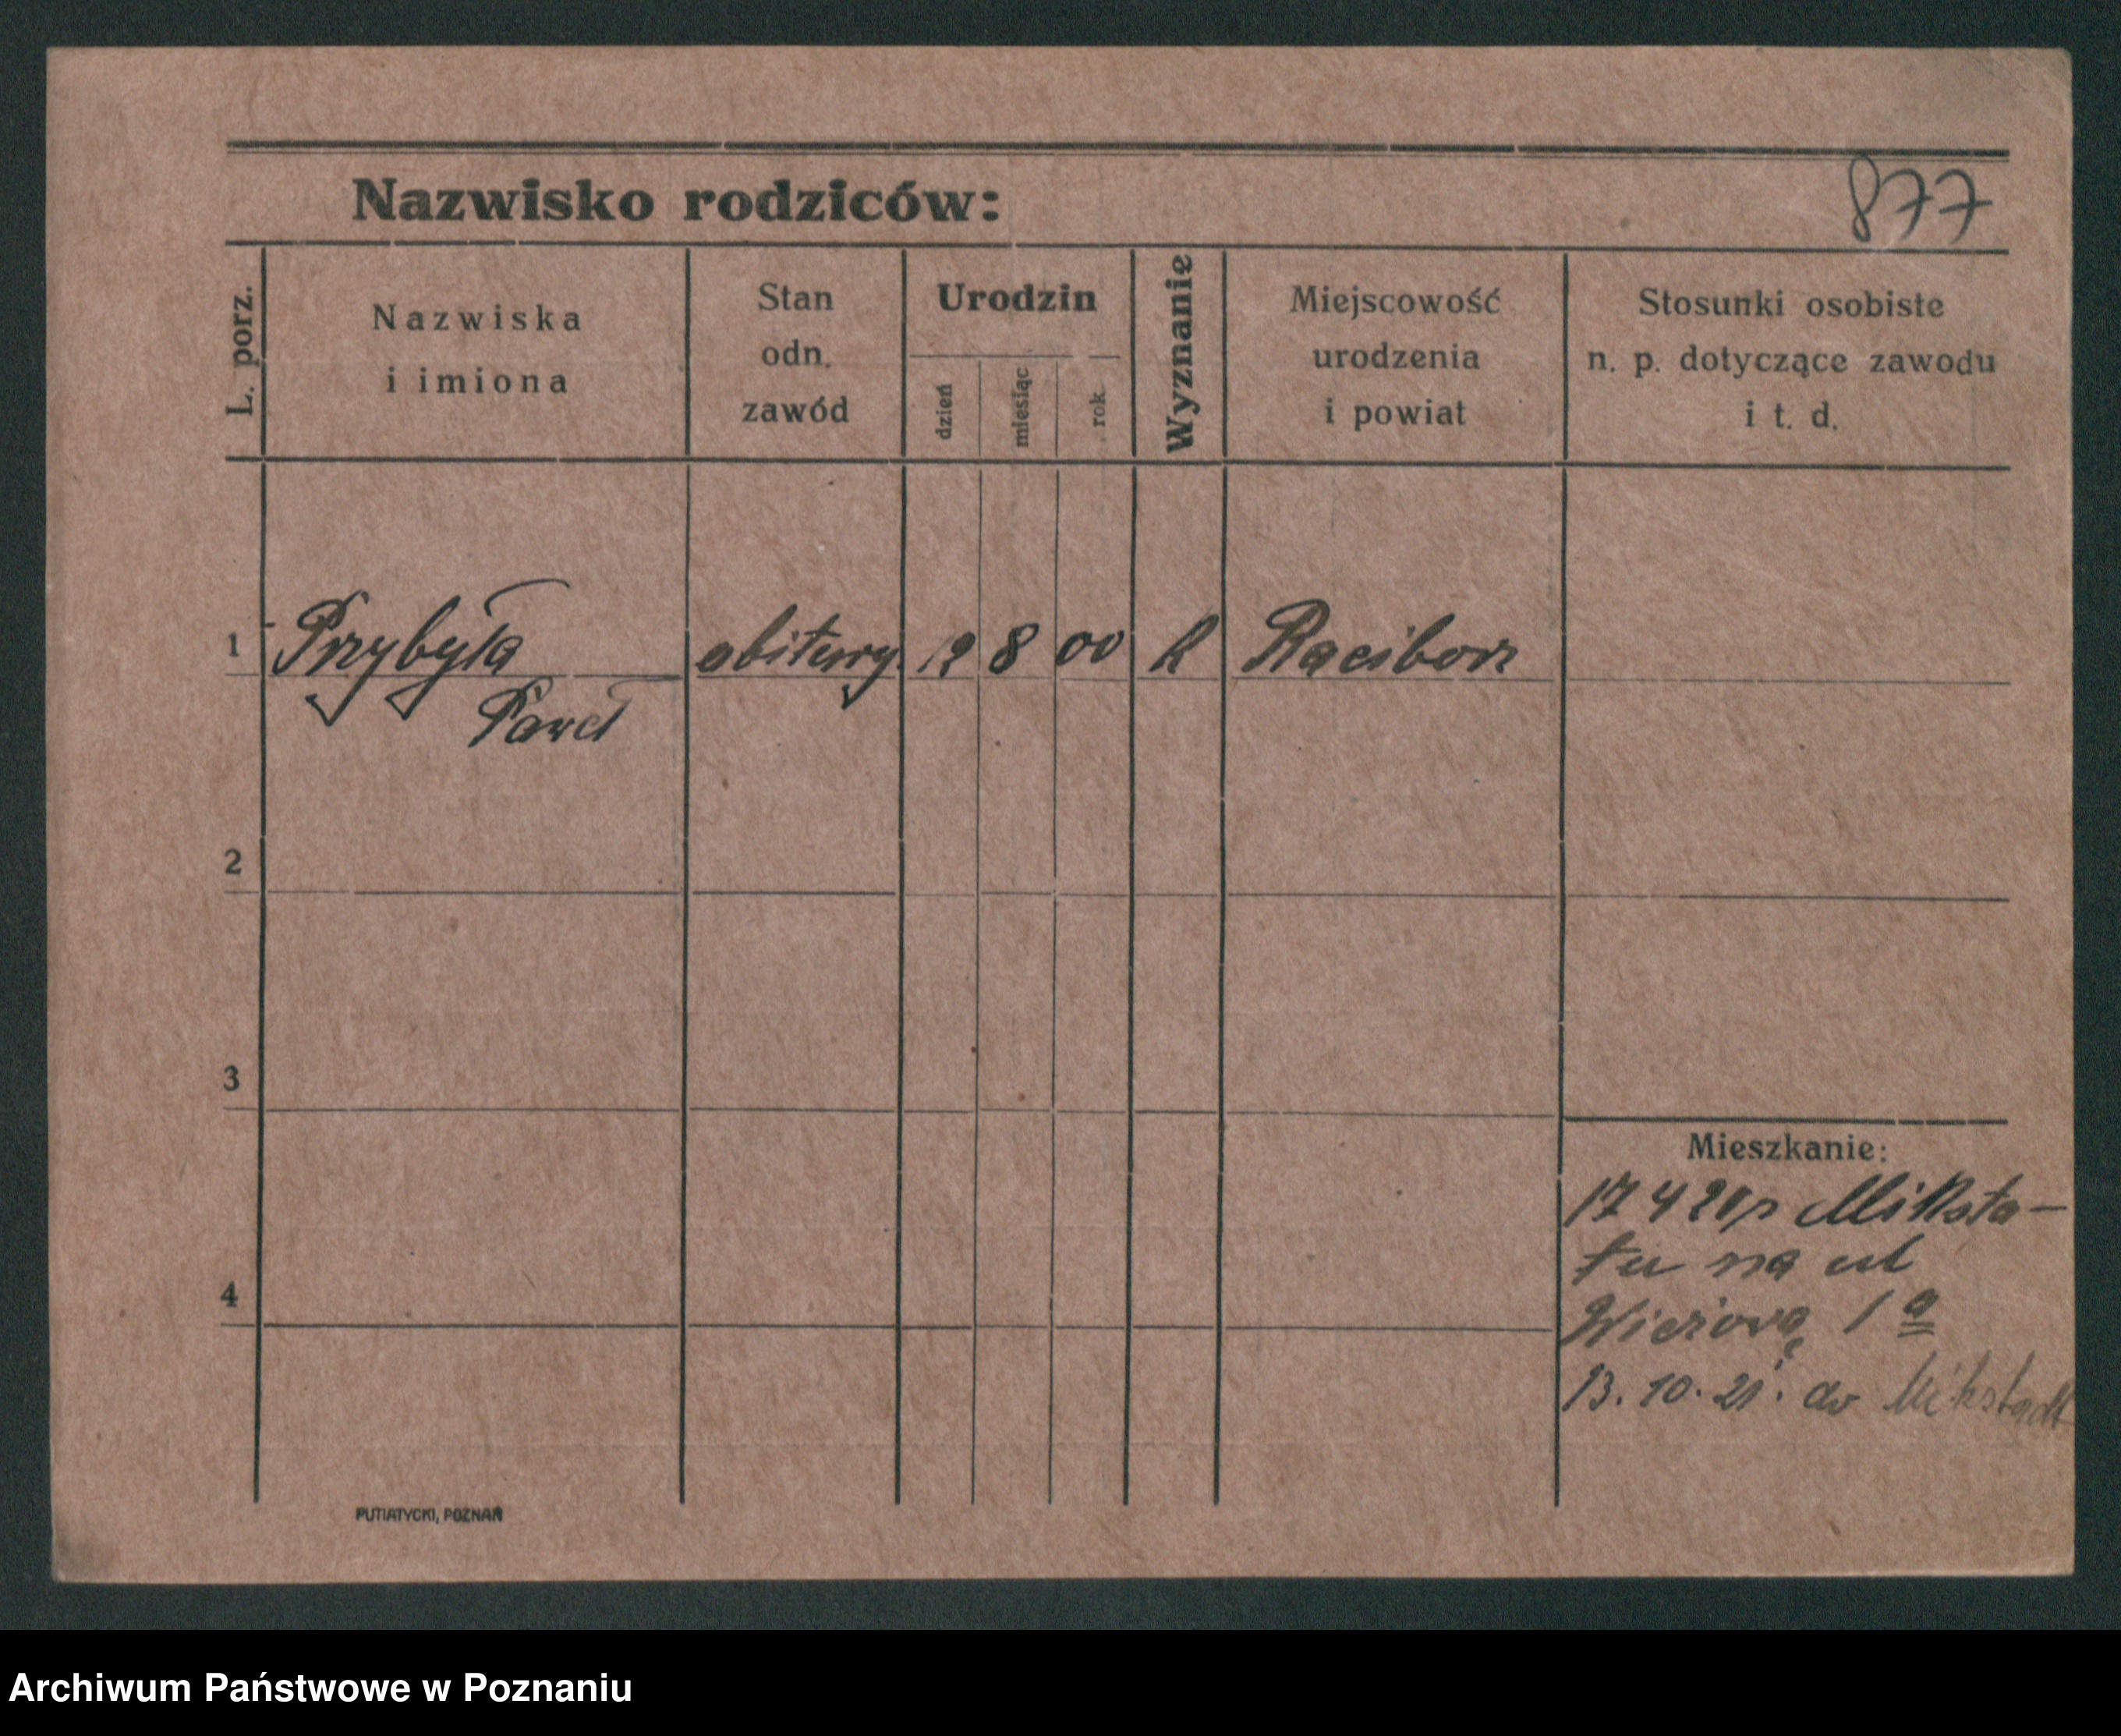 Nazwisko rodziców:
877
L. porz.
Nazwiska
i imiona
Stan
odn.
zawód
Urodzin
dzień
miesiąc
rok
Wyznanie
Miejscowość
urodzenia
i powiat
Stosunki osobiste
n. p. dotyczące zawodu
i t. d.
1 Przybyła 19 8 00 Racibórz
Paweł
2
3
4
Mieszkanie:
17 4 21 Miksta-
tu na ul
Wieżową 1a
13. 10. 21. do Mikstadt
PUTIATYCKI, POZNAŃ
Archiwum Państwowe w Poznaniu